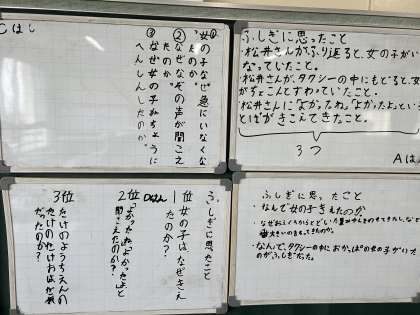 Cはん
①女の子なぜ急にいなくな
ったのか。
②なぜなぞの声が聞こえ
たのか。
③なぜ女の子がちょうに
へんしんしたのか。
ふしぎに思ったこと
・松井さんがふり返ると、女の子がい
なっていたこと。
・松井さんが、タクシーの中にもどると、女
がちょこんとすわっていたこと。
・松井さんに「よかったね。」「よかったよ。」といい
とばがきこえてきたこと。
3つ
Aは
ふしぎに思ったこと
1位
女の子はなぜきえ
たのか?
Dはん
2位
「よかったね」「よかったよ」と
聞こえたのか?
3位
たけのようちえんの
たけのたけおはが
だったのか?
ふしぎに思ったこと
・なんで女の子きえたのか
・なんで、タクシーの中におかっぱの女の子がいた
のがふしぎだった。